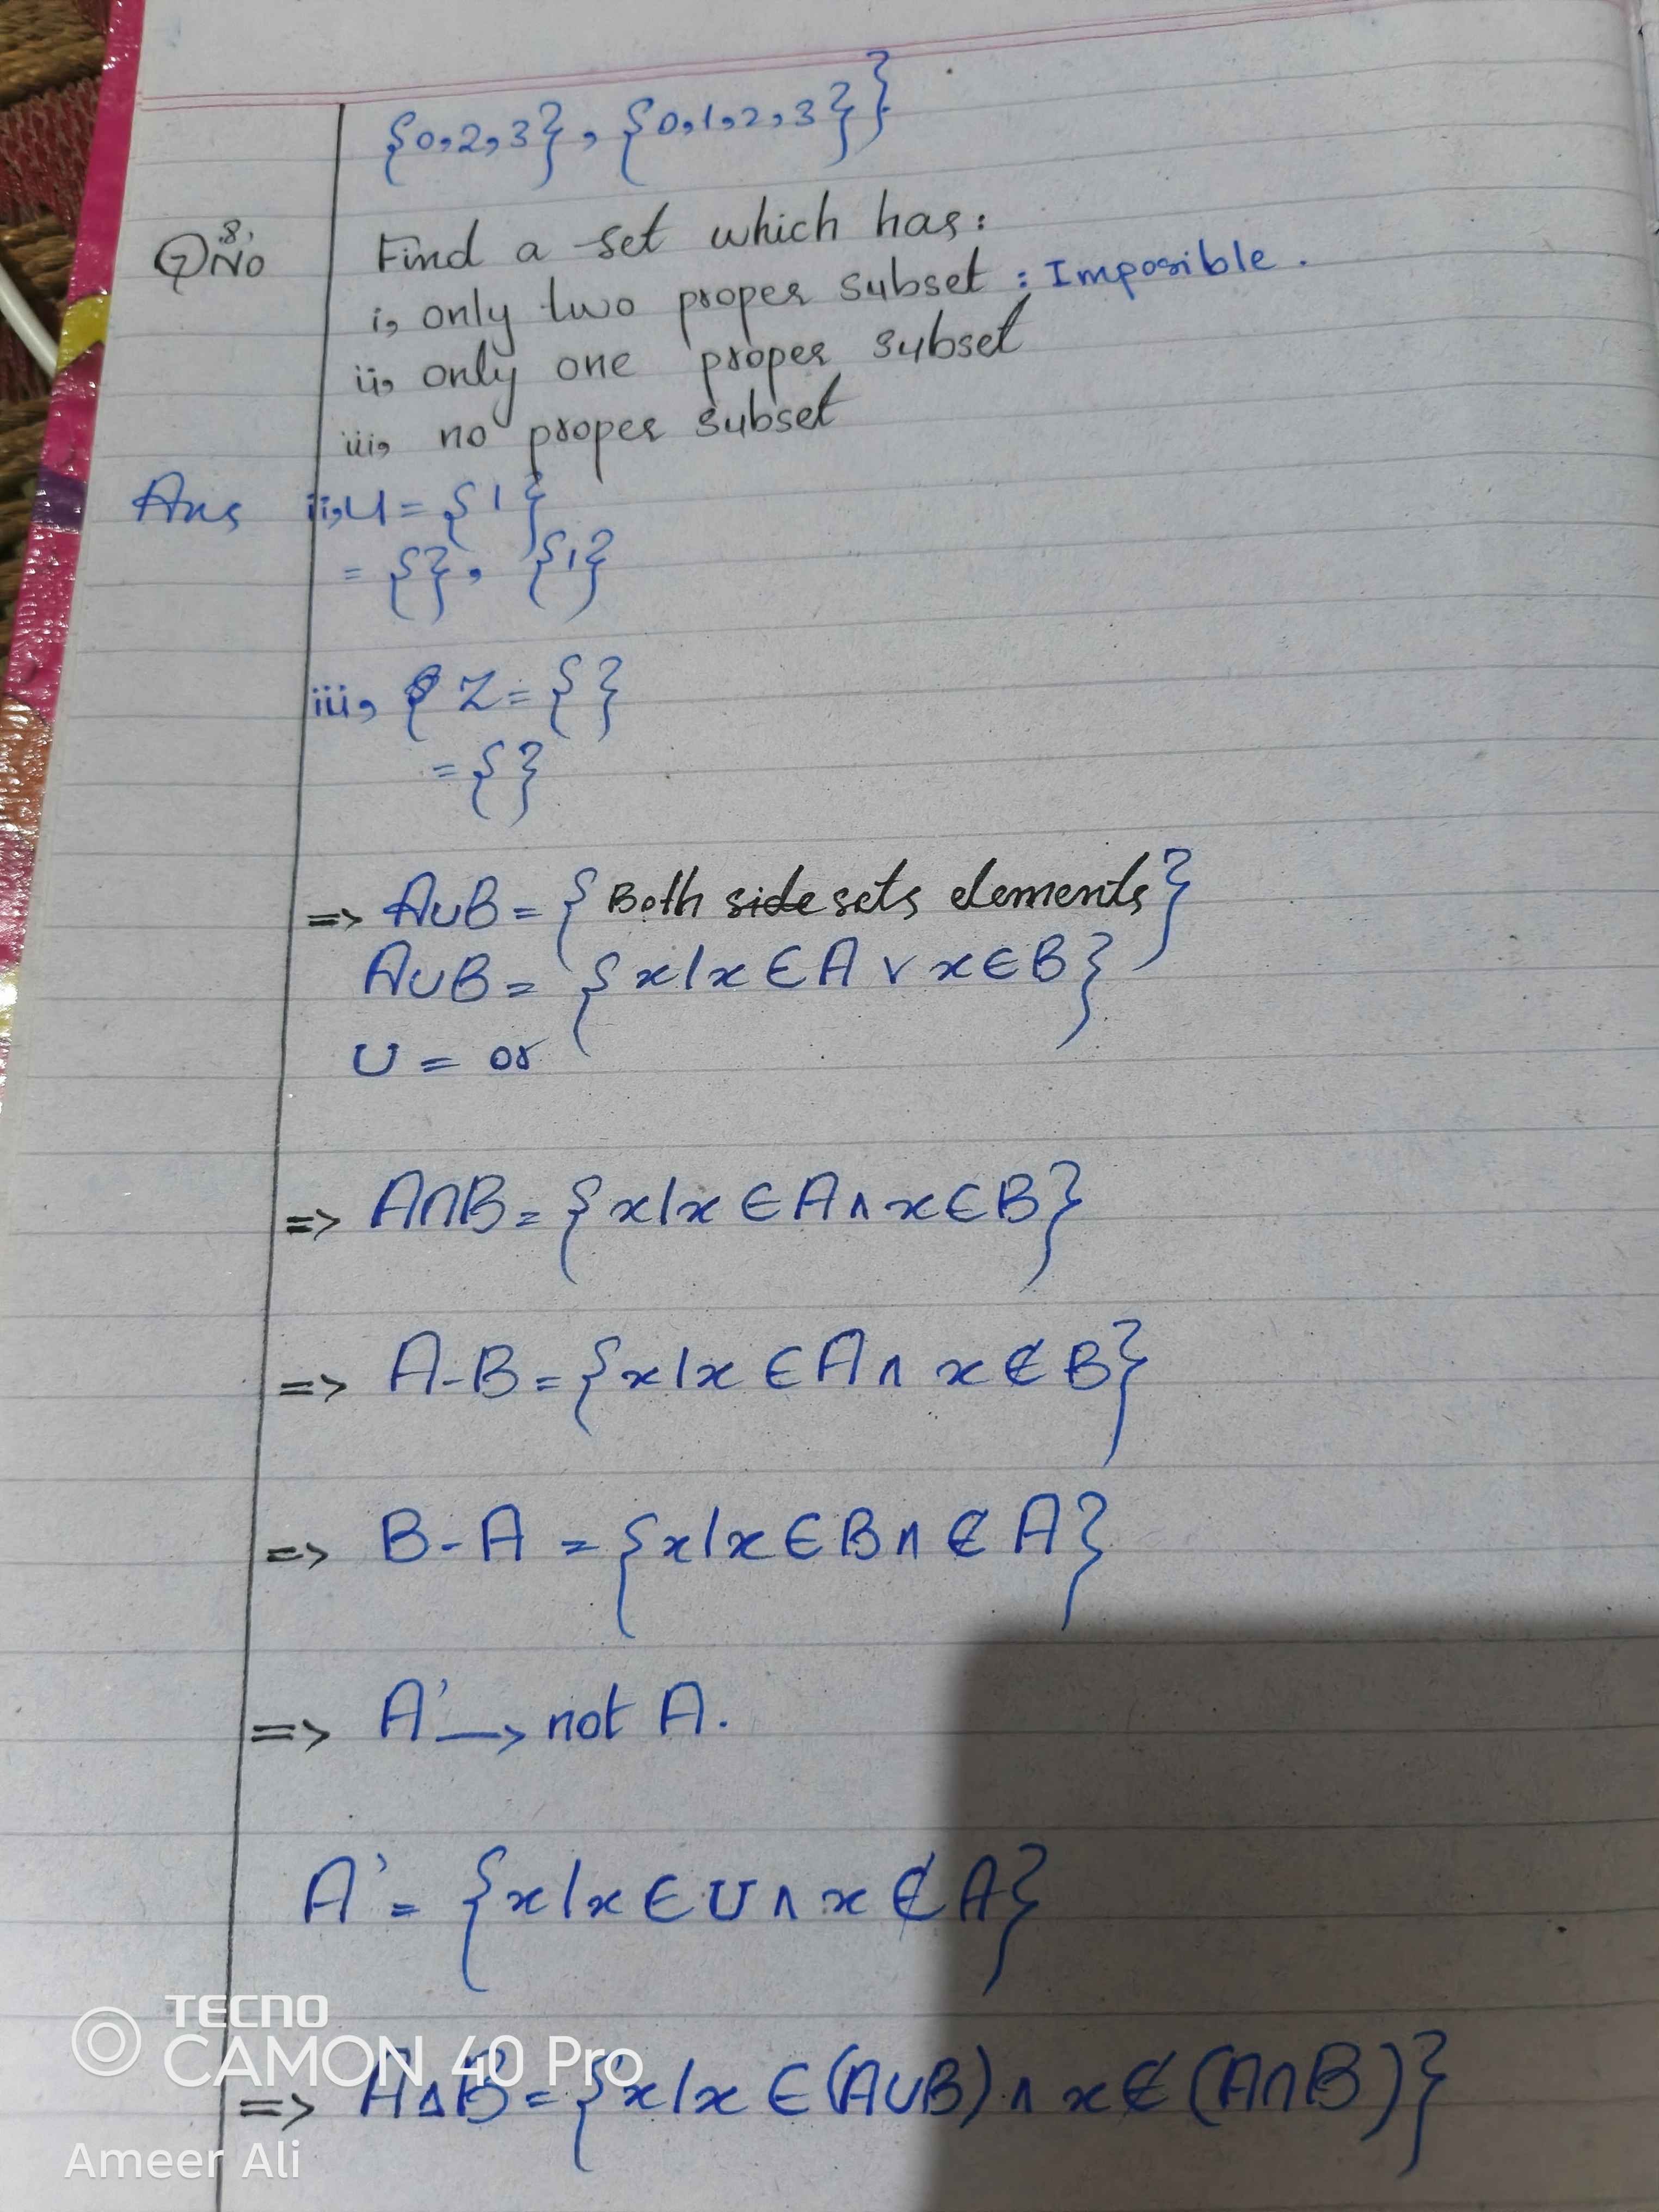 {0,2,3}, {0,1,2,3}}
Q No 8. Find a set which has:
i, only two proper subset : Imposible.
ii, only one proper subset
iii, no proper subset
Ans ii, U = {1}
= {}, {1}
iii, Z = { }
= { }
=> A∪B = { Both side sets elements}
A∪B = {x/x ∈ A ∨ x ∈ B}
U = or
=> A∩B = {x/x ∈ A ∧ x ∈ B}
=> A-B = {x/x ∈ A ∧ x ∉ B}
=> B-A = {x/x ∈ B ∧ ∉ A}
=> A' → not A.
A' = {x/x ∈ U ∧ x ∉ A}
=> A△B = {x/x ∈ (A∪B) ∧ x ∉ (A∩B)}
TECNO
CAMON 40 Pro
Ameer Ali